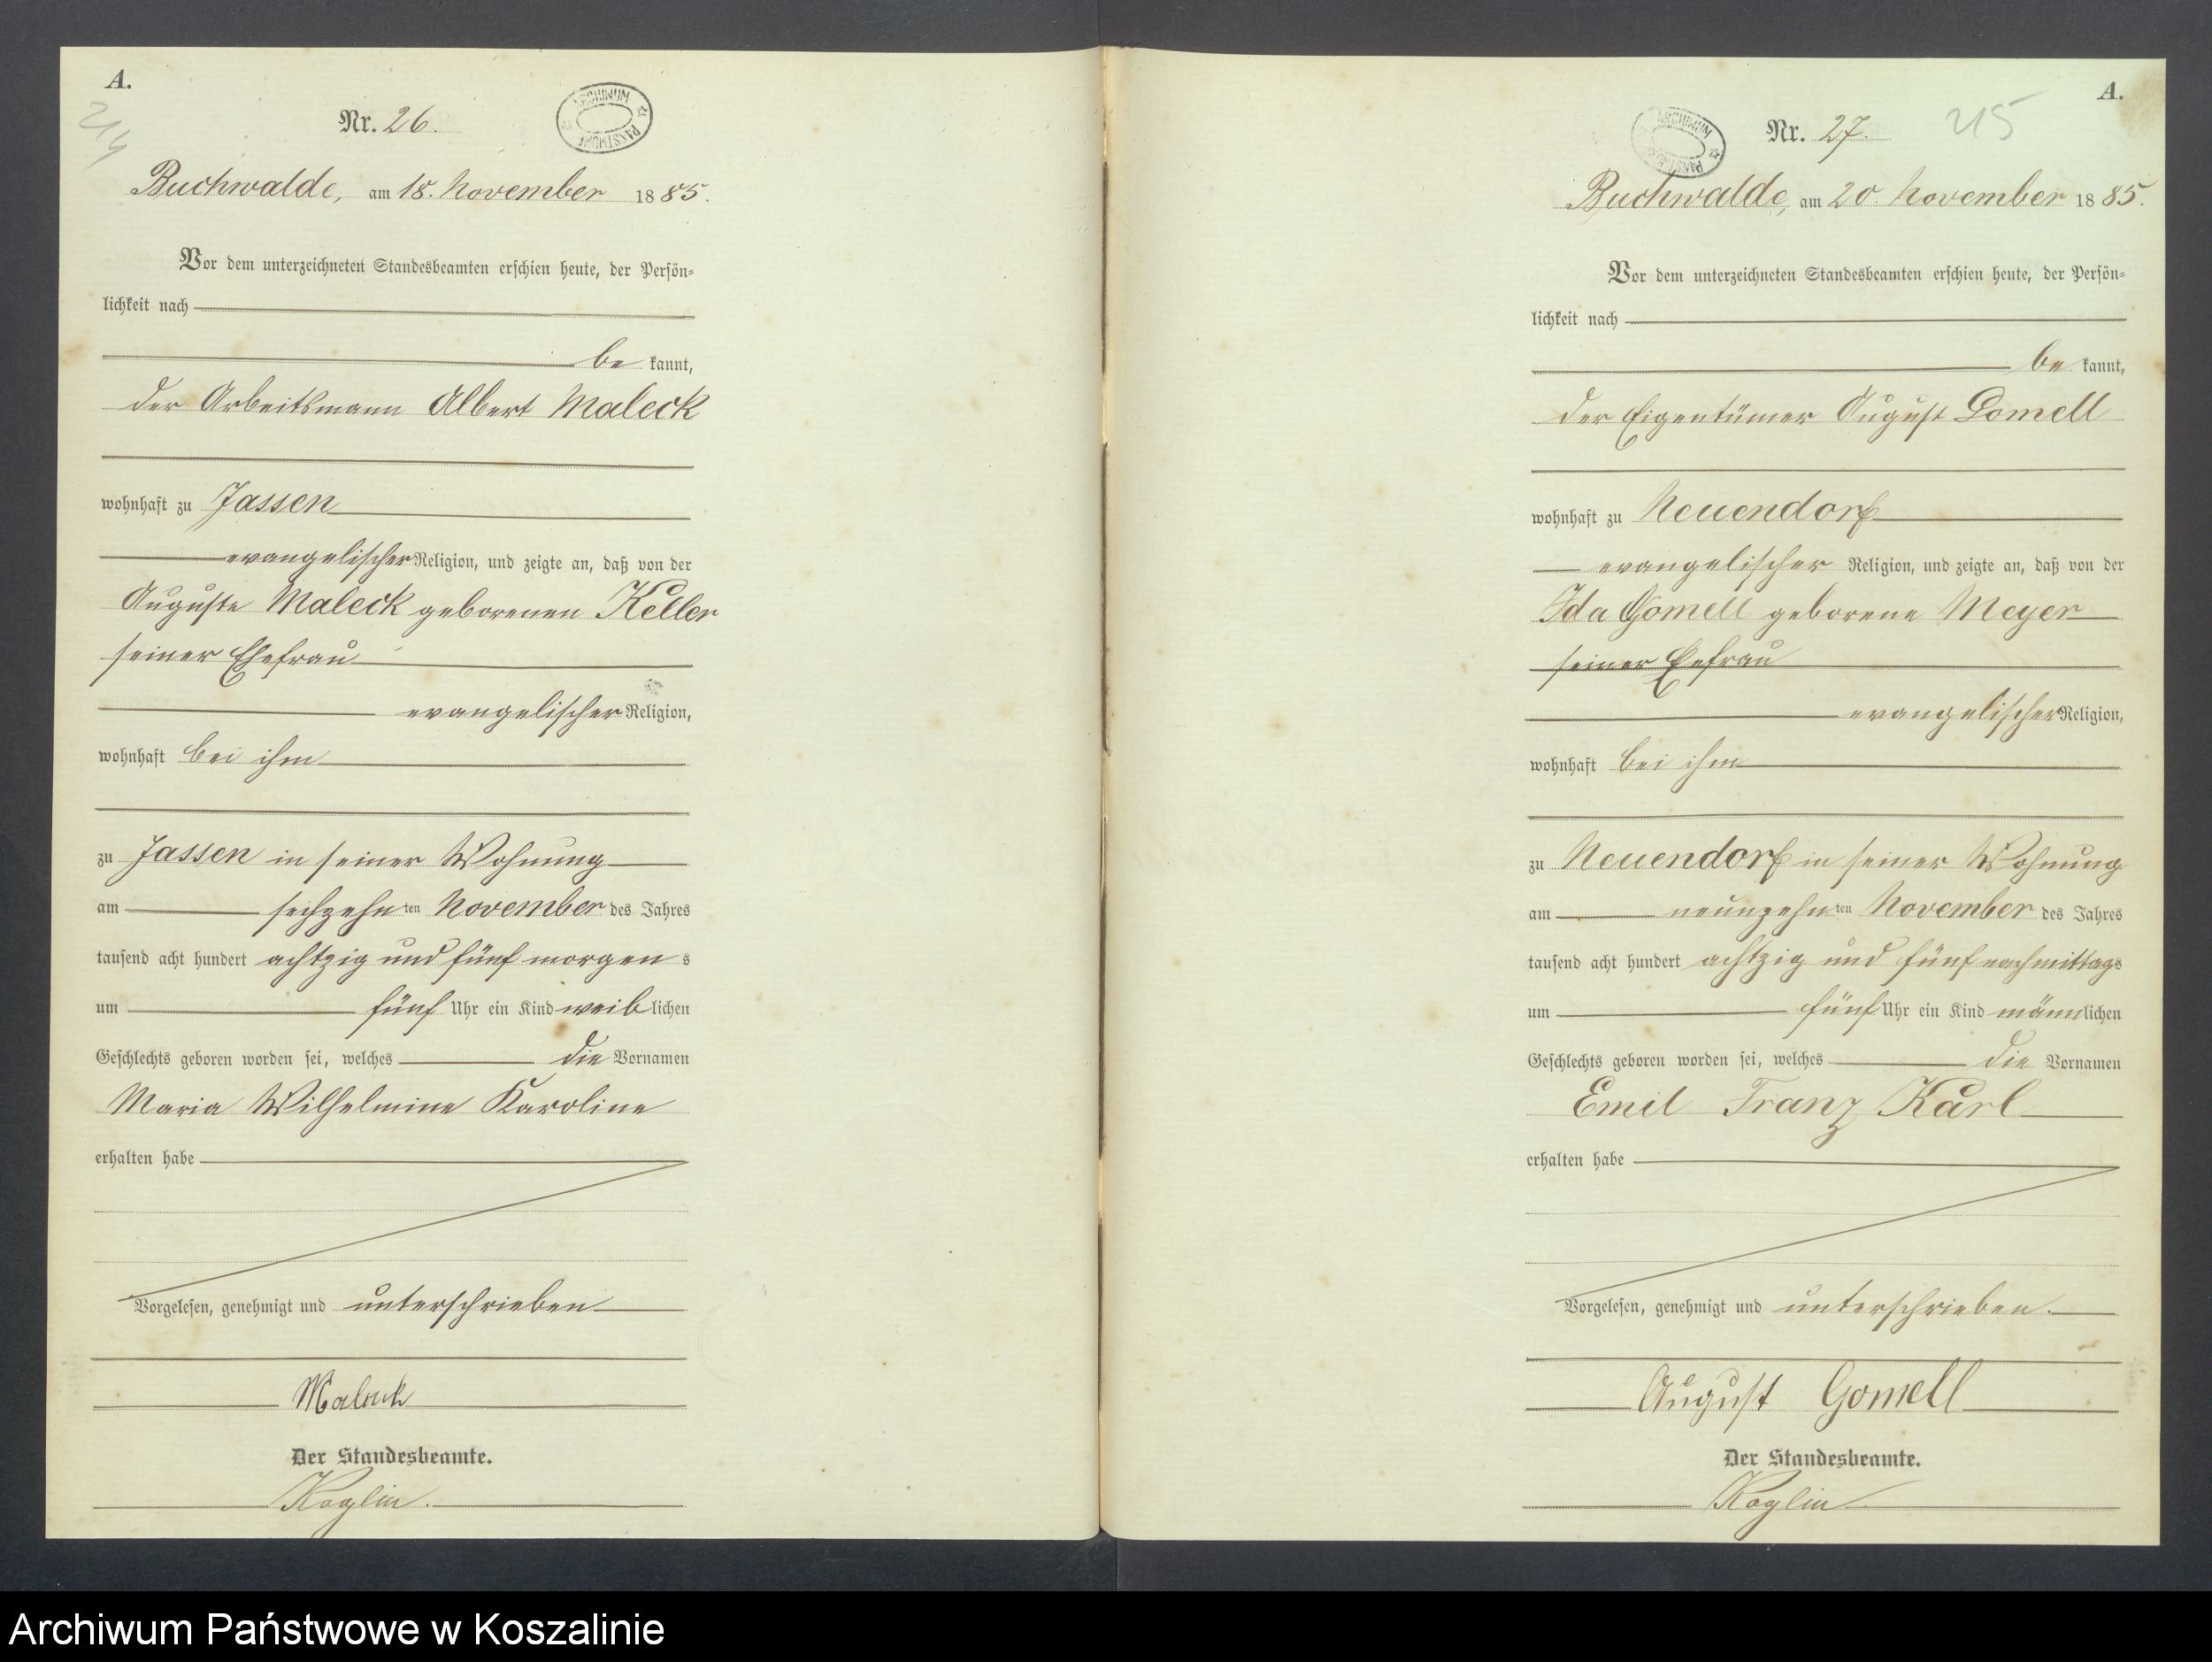 A.
214
Nr. 26.
ARCHIWUM PAŃSTWOWE
Buchwalde, am 18. November 1885.
Vor dem unterzeichneten Standesbeamten erschien heute, der Persön-
lichkeit nach
be kannt,
der Arbeitsmann Albert Maleck
wohnhaft zu Jassen
evangelischer Religion, und zeigte an, daß von der
Auguste Maleck geborenen Keller
seiner Ehefrau
evangelischer Religion,
wohnhaft bei ihm
zu Jassen in seiner Wohnung
am sechzehn ten November des Jahres
tausend acht hundert achtzig und fünf morgen s
um fünf Uhr ein Kind weib lichen
Geschlechts geboren worden sei, welches die Vornamen
Maria Wilhelmine Karoline
erhalten habe
Vorgelesen, genehmigt und unterschrieben
Maleck
Der Standesbeamte.
Koglin.
A.
215
Nr. 27.
ARCHIWUM PAŃSTWOWE
Buchwalde, am 20. November 1885.
Vor dem unterzeichneten Standesbeamten erschien heute, der Persön-
lichkeit nach
be kannt,
der Eigentümer August Gomell
wohnhaft zu Neuendorf
evangelischer Religion, und zeigte an, daß von der
Ida Gomell geborene Meyer
seiner Eefrau
evangelischer Religion,
wohnhaft bei ihm
zu Neuendorf in seiner Wohnung
am neunzehn ten November des Jahres
tausend acht hundert achtzig und fünf nachmittags
um fünf Uhr ein Kind männ lichen
Geschlechts geboren worden sei, welches die Vornamen
Emil Franz Karl
erhalten habe
Vorgelesen, genehmigt und unterschrieben.
August Gomell
Der Standesbeamte.
Koglin
Archiwum Państwowe w Koszalinie